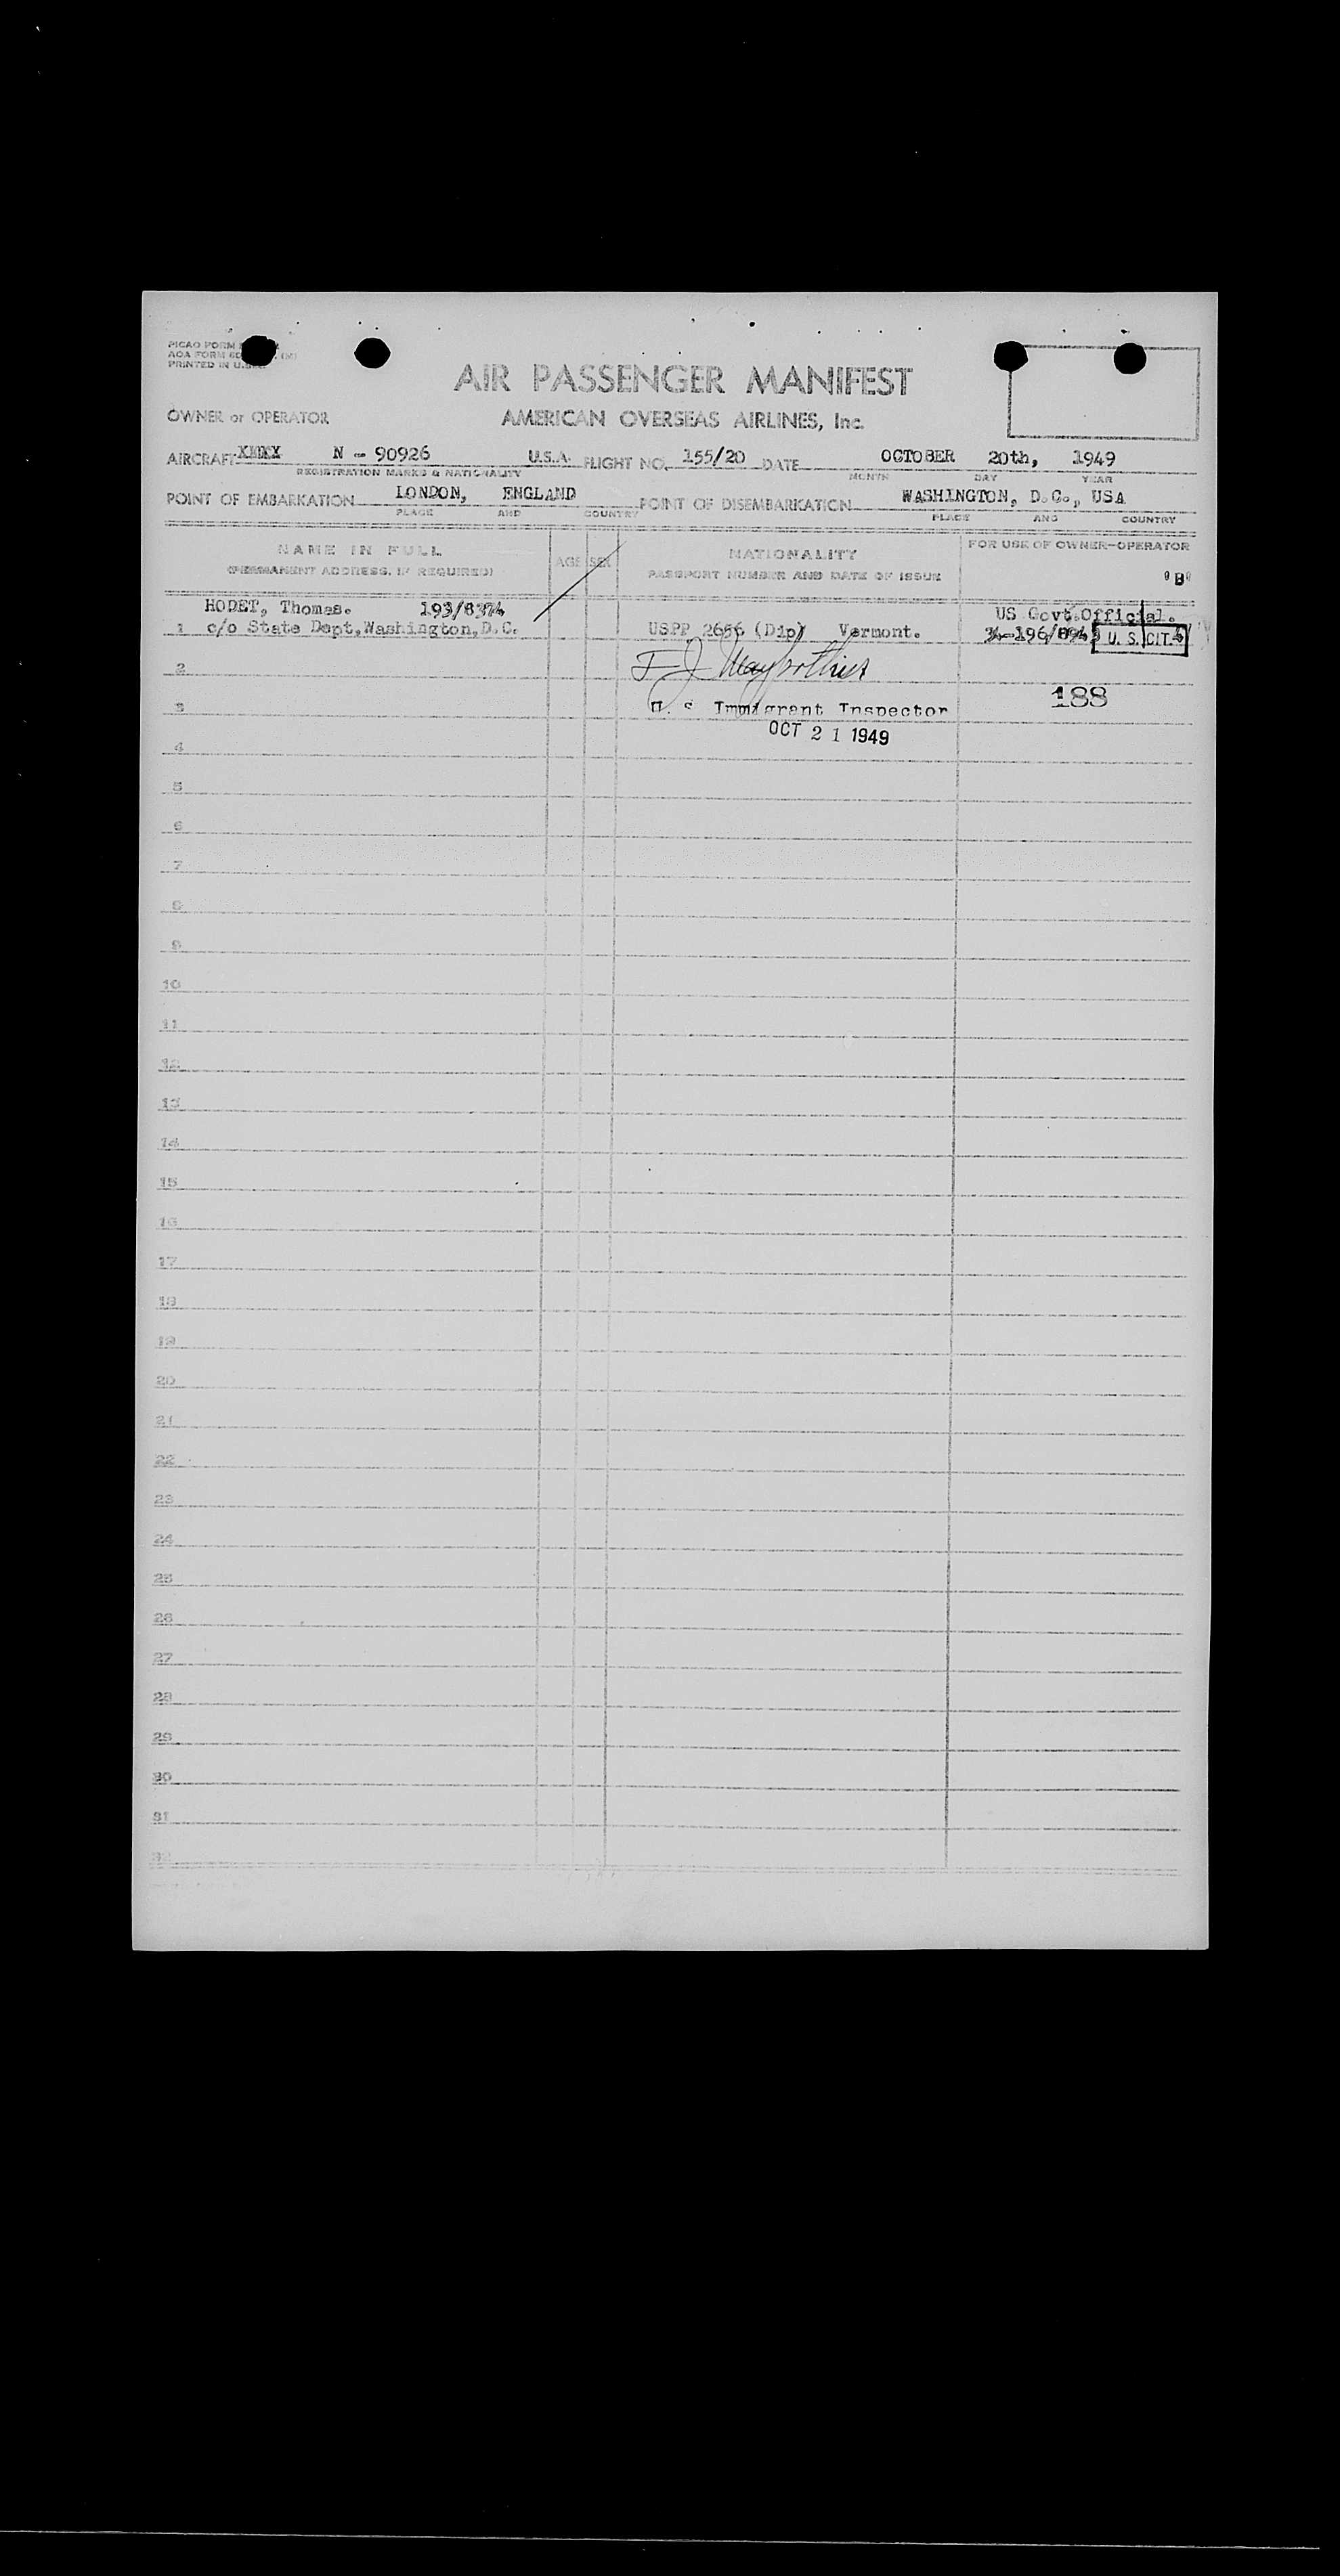 PICAO FORM
AOA FORM
PRINTED IN
AIR PASSENGER MANIFEST
OWNER or OPERATOR AMERICAN OVERSEAS AIRLINES, Inc.
AIRCRAFT N - 90926 U.S.A. FLIGHT NO. 155/20 DATE OCTOBER 20th, 1949
REGISTRATION MARKS & NATIONALITY MONTH DAY YEAR
POINT OF EMBARKATION LONDON, ENGLAND POINT OF DISEMBARKATION WASHINGTON, D.C., USA
PLACE AND COUNTRY PLACE AND COUNTRY
NAME IN FULL AGE SEX NATIONALITY FOR USE OF OWNER-OPERATOR
(PERMANENT ADDRESS, IF REQUIRED) PASSPORT NUMBER AND DATE OF ISSUE 'B'
HODET, Thomas. US Govt.Official.
1 c/o State Dept,Washington,D.C. USPP (Dip) Vermont. U. S. CIT.
2
3 U. S Immigrant Inspector 188
OCT 21 1949
4
5
6
7
8
9
10
11
12
13
14
15
16
17
18
19
20
21
22
23
24
25
26
27
28
29
30
31
32